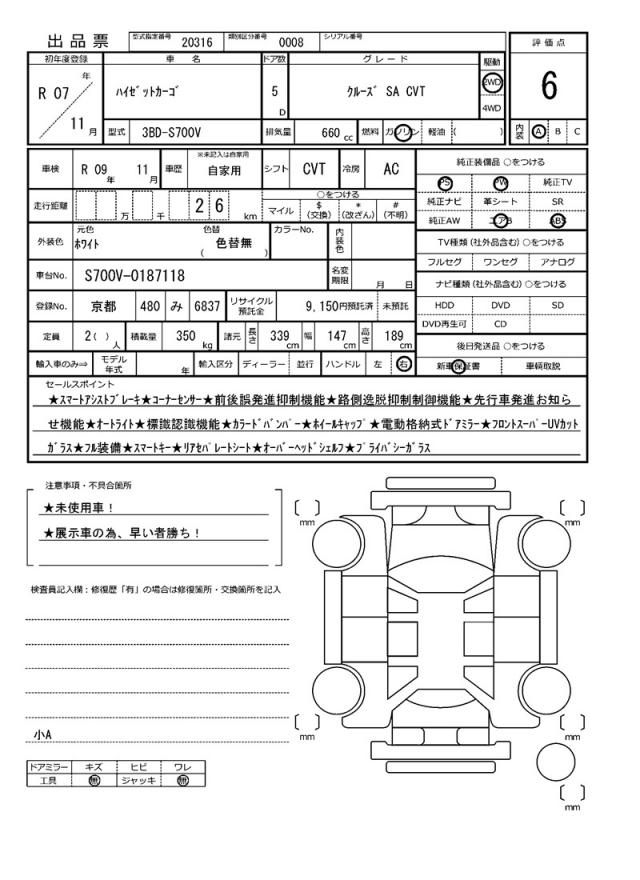 出品票 型式指定番号 20316 類別区分番号 0008 シリアル番号
評価点
6
内装 A B C
初年度登録 車名 ドア数 グレード 駆動
R 07 年 11 月 ﾊｲｾﾞｯﾄｶｰｺﾞ 5 D ｸﾙｰｽﾞ SA CVT 2WD 4WD
型式 3BD-S700V 排気量 660 cc 燃料 ガソリン 軽油 ( )
車検 R 09 年 11 月 車歴 ※未記入は自家用 自家用 シフト CVT 冷房 AC
走行距離 万 千 2 6 km ○をつける
マイル $(交換) *(改ざん) #(不明)
外装色 元色 ﾎﾜｲﾄ 色替 色替無 ( ) カラーNo. 内装色
車台No. S700V-0187118 名変期限 月 日
登録No. 京都 480 み 6837 リサイクル預託金 9,150円預託済 未預託
定員 2( ) 人 積載量 350 kg 諸元 長さ 339 cm 幅 147 cm 高さ 189 cm
輸入車のみ⇒ モデル年式 年 輸入区分 ディーラー 並行 ハンドル 左 右
純正装備品 ○をつける
PS PW 純正TV
純正ナビ 革シート SR
純正AW エアB ABS
TV種類 (社外品含む) ○をつける
フルセグ ワンセグ アナログ
ナビ種類 (社外品含む) ○をつける
HDD DVD SD
DVD再生可 CD
後日発送品 ○をつける
新車保証書 車輌取説
セールスポイント
★ｽﾏｰﾄｱｼｽﾄﾌﾞﾚｰｷ★ｺｰﾅｰｾﾝｻｰ★前後誤発進抑制機能★路側逸脱抑制制御機能★先行車発進お知ら
せ機能★ｵｰﾄﾗｲﾄ★標識認識機能★ｶﾗｰﾄﾞﾊﾞﾝﾊﾟｰ★ﾎｲｰﾙｷｬｯﾌﾟ★電動格納式ﾄﾞｱﾐﾗｰ★ﾌﾛﾝﾄｽｰﾊﾟｰUVカット
ｶﾞﾗｽ★ﾌﾙ装備★ｽﾏｰﾄｷｰ★ﾘｱｾﾊﾟﾚｰﾄｼｰﾄ★ｵｰﾊﾞｰﾍｯﾄﾞｼｪﾙﾌ★ﾌﾟﾗｲﾊﾞｼｰｶﾞﾗｽ
注意事項・不具合箇所
★未使用車！
★展示車の為、早い者勝ち！
検査員記入欄：修復歴「有」の場合は修復箇所・交換箇所を記入
小A
ドアミラー キズ ヒビ ワレ
工具 無 ジャッキ 無
mm
mm
mm
mm
mm